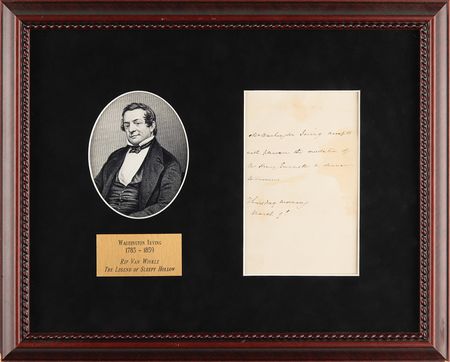 WASHINGTON IRVING
1783 - 1859
RIP VAN WINKLE
THE LEGEND OF SLEEPY HOLLOW
Mr Washington Irving accepts
with pleasure the invitation of
Mr Henry to dinner
Thursday morning
March 9th